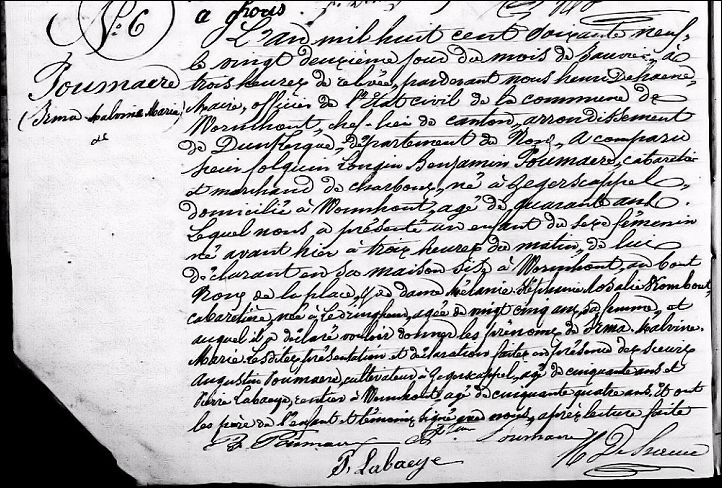 N.° 6
Poumaere
(Irma Malvina Marie)
L'an mil huit cent soixante neuf,
le vingt deuxième jour du mois de Janvier, à
trois heures de relevée, pardevant nous henri
Maire, officier de l'Etat civil de la commune de
Wormhout, chef lieu de canton, arrondissement
de Dunkerque, département du Nord, a comparu
sieur folquin Longin Benjamin Poumaere, cabaretier
et marchand de charbons, né à Zegerscappel,
domicilié à Wormhout, agé de quarante ans.
Lequel nous a présenté un enfant du sexe féminin
né avant hier à trois heures du matin, de lui
déclarant en sa maison sise à Wormhout, au bout
Nord de la place, et de dame Mélanie Stéphanie Rosalie
cabaretière, née à Ledringhem, agée de vingt cinq ans, sa femme, et
auquel il a déclaré vouloir donner les prénoms de Irma Malvina
Marie. Lesdites présentation et déclaration faites en présence des sieurs
augustin Poumaere, cultivateur à Zegerscappel, agé de cinquante ans et
Pierre Labaeye, rentier à Wormhout, agé de cinquante quatre ans. Et ont
les père de l'enfant et témoins signé avec nous, après lecture faite
B. Poumaere
P. Labaeye